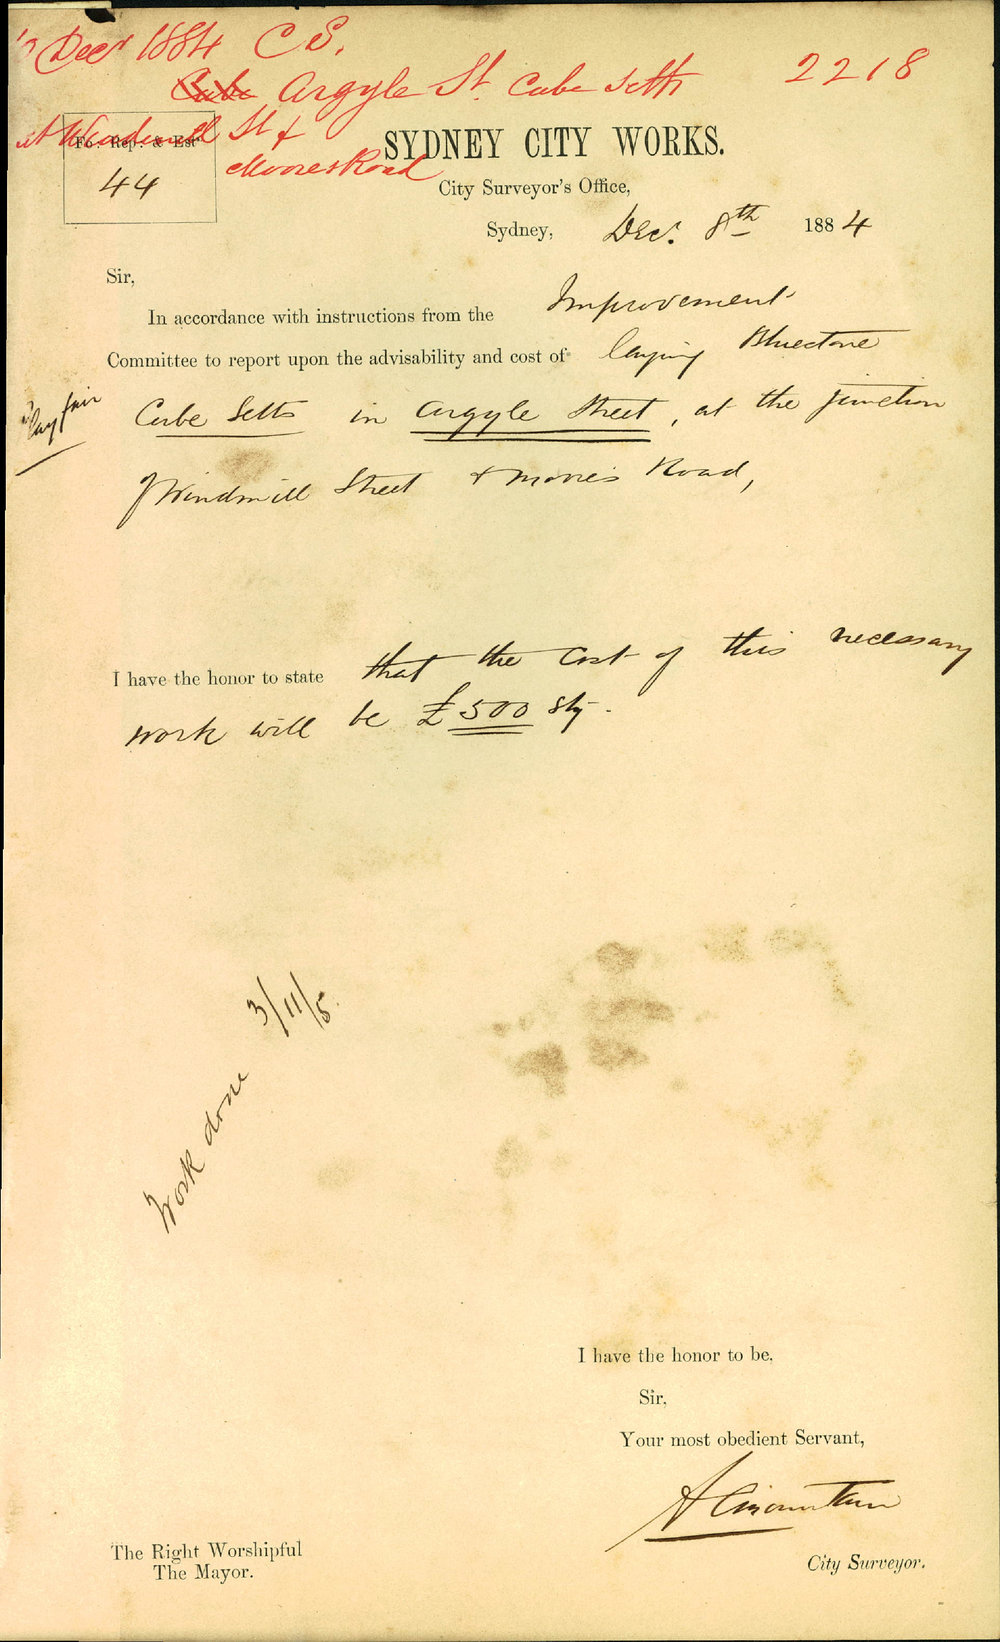 Decr 1884 C S.
Cube Argyle St. Cube Setts 2218
at Windmill St &
Moores Road
Fo: Rep: & Estt
44
SYDNEY CITY WORKS.
City Surveyor's Office,
Sydney, Dec. 8th 1884
Sir,
In accordance with instructions from the Improvement
Committee to report upon the advisability and cost of laying Bluestone
Playfair
Cube Setts in Argyle Street, at the junction
of Windmill Street & Moore's Road,
I have the honor to state that the cost of this necessary
work will be £500 stg.
Work done 3/11/5.
I have the honor to be,
Sir,
Your most obedient Servant,
City Surveyor.
The Right Worshipful
The Mayor.